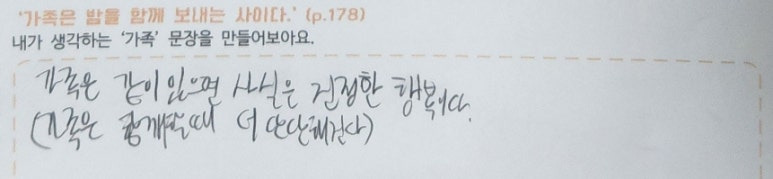 '가족은 밥을 함께 보내는 사이다.' (p.178)
내가 생각하는 '가족' 문장을 만들어보아요.
가족은 같이 있으면 사실은 진정한 행복이다.
(가족은 함께할때 더 단단해진다)